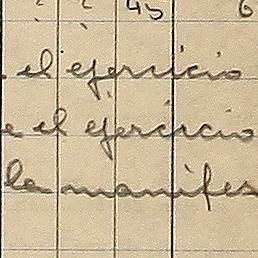 45 6
. el ejercicio
e el ejercicio
la manifes